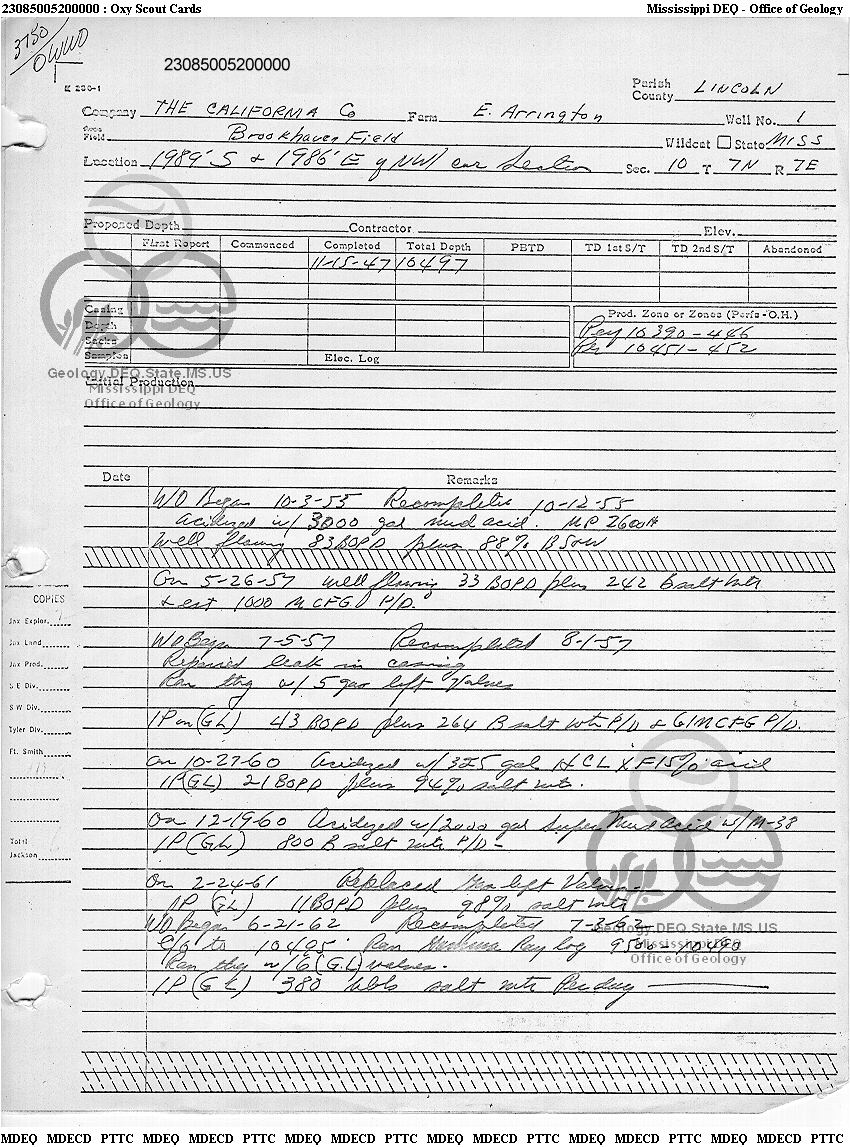 23085005200000 : Oxy Scout Cards Mississippi DEQ - Office of Geology
3750
OWWO
23085005200000
K 230-1
Parish
County LINCOLN
Company THE CALIFORNIA Co Farm E. Arrington Well No. 1
Area
Field Brookhaven Field Wildcat State MISS
Location 1989' S & 1986' E of NW/ cor Section Sec. 10 T 7N R 7E
Proposed Depth Contractor Elev.
First Report Commenced Completed Total Depth PBTD TD 1st S/T TD 2nd S/T Abandoned
11-15-47 10497
Casing Prod. Zone or Zones (Perfs-O.H.)
Depth Pay 10390-446
Sacks Per 10451-452
Samples Elec. Log
Geology.DEQ.State.MS.US
Initial Production
Mississippi DEQ
Office of Geology
Date Remarks
WO Began 10-3-55 Recompleted 10-12-55
Acidized w/ 3000 gal mud acid. MP 2600#
Well flowing 83 BOPD plus 88% BS&W
On 5-26-57 well flowing 33 BOPD plus 242 B salt wtr
& est 1000 MCFG P/D.
COPIES
Jax Explor.
WO Began 7-5-57 Recompleted 8-1-57
Jax Land
Repaired leak in casing
Jax Prod.
Ran tbg w/ 5 gas lift Valves
S E Div.
S W Div.
IP on (GL) 43 BOPD plus 264 B salt wtr P/D & 61 MCFG P/D.
Tyler Div.
Ft. Smith
On 10-27-60 Acidized w/ 325 gal HCL X F15% acid
IP(GL) 21 BOPD plus 94% salt wtr.
On 12-19-60 Acidized w/ 2000 gal super Mud acid w/ M-38
Total
IP (GL) 800 B salt wtr P/D -
Jackson
On 2-24-61 Replaced Gas lift Valves -
IP (GL) 11 BOPD plus 98% salt wtr
WO Began 6-21-62 Recompleted 7-3-62
Geology.DEQ.State.MS.US
C/O to 10495' Ran Gamma Ray log 9506-10490
Mississippi DEQ
Ran tbg w/ 6 (GL) valves.
Office of Geology
IP (GL) 380 bbls salt wtr Per day
MDEQ MDECD PTTC MDEQ MDECD PTTC MDEQ MDECD PTTC MDEQ MDECD PTTC MDEQ MDECD PTTC MDEQ MDECD PTTC